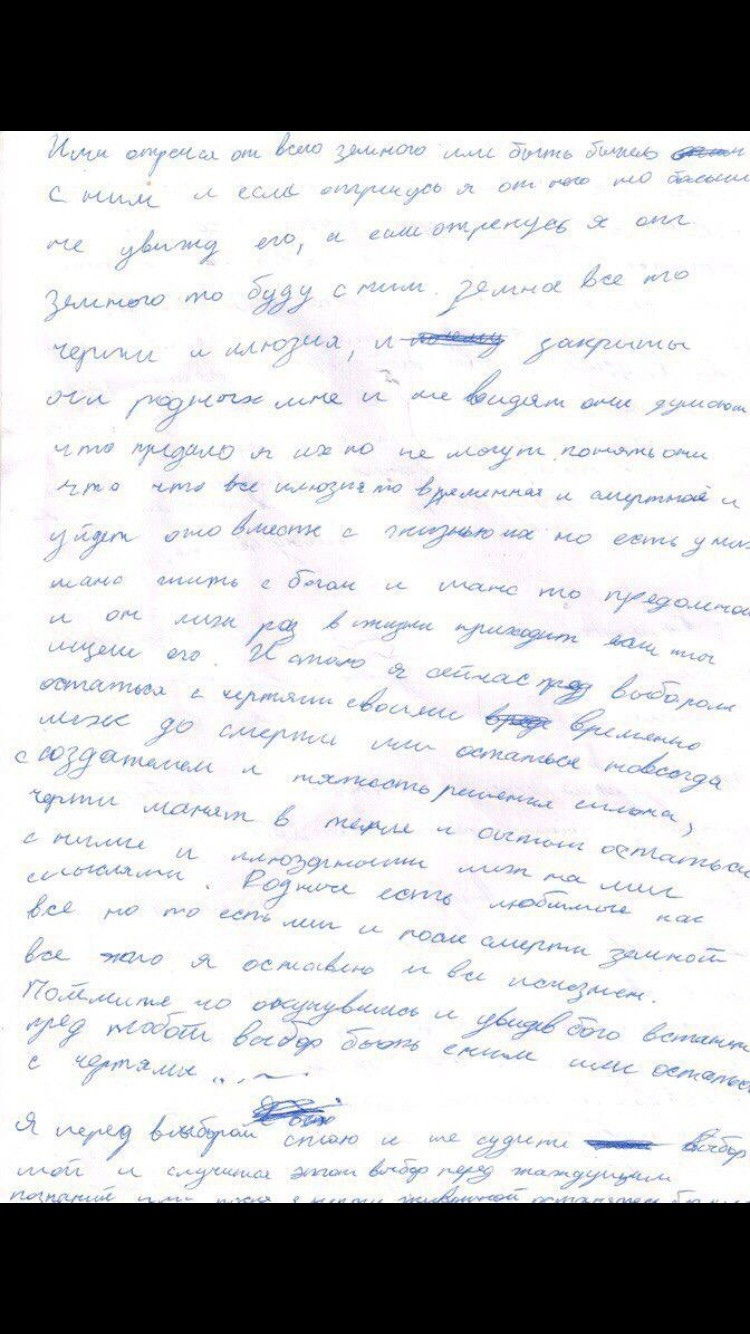 от всего земного или быть
с ним и если я от него то
не увижд его, а если отренусь я от
земного то буду с ним. земное все то
черти и илюзия, и закрыты
очи родных мне и не видят они думают
что предало я их но не могут понять они
что что все илюзия то временная и смертное и
уйдет оно вместе с жизнью их но есть у них
шанс жить с богом и шанс то предомной
и он лиш раз в жизни приходит если ты
ищеш его. И стою я сейчас пред выбором
остаться с чертями своими временно
лиж до смерти или остаться навсегда
с создателем и тяжесть решения сильна,
черти манят в тепле и остаться
с ними и лиш на миг
смыслами. Родные есть любимые как
все но то есть миг и после смерти земной
все я оставлю и все исчезнет.
Поймите но окунувшись и увидев бога
пред тобой выбор быть с ним или остаться
с чертями
Я перед выбором стою и не судите выбор
мой и случится этот выбор перед жаждущим
познаний или